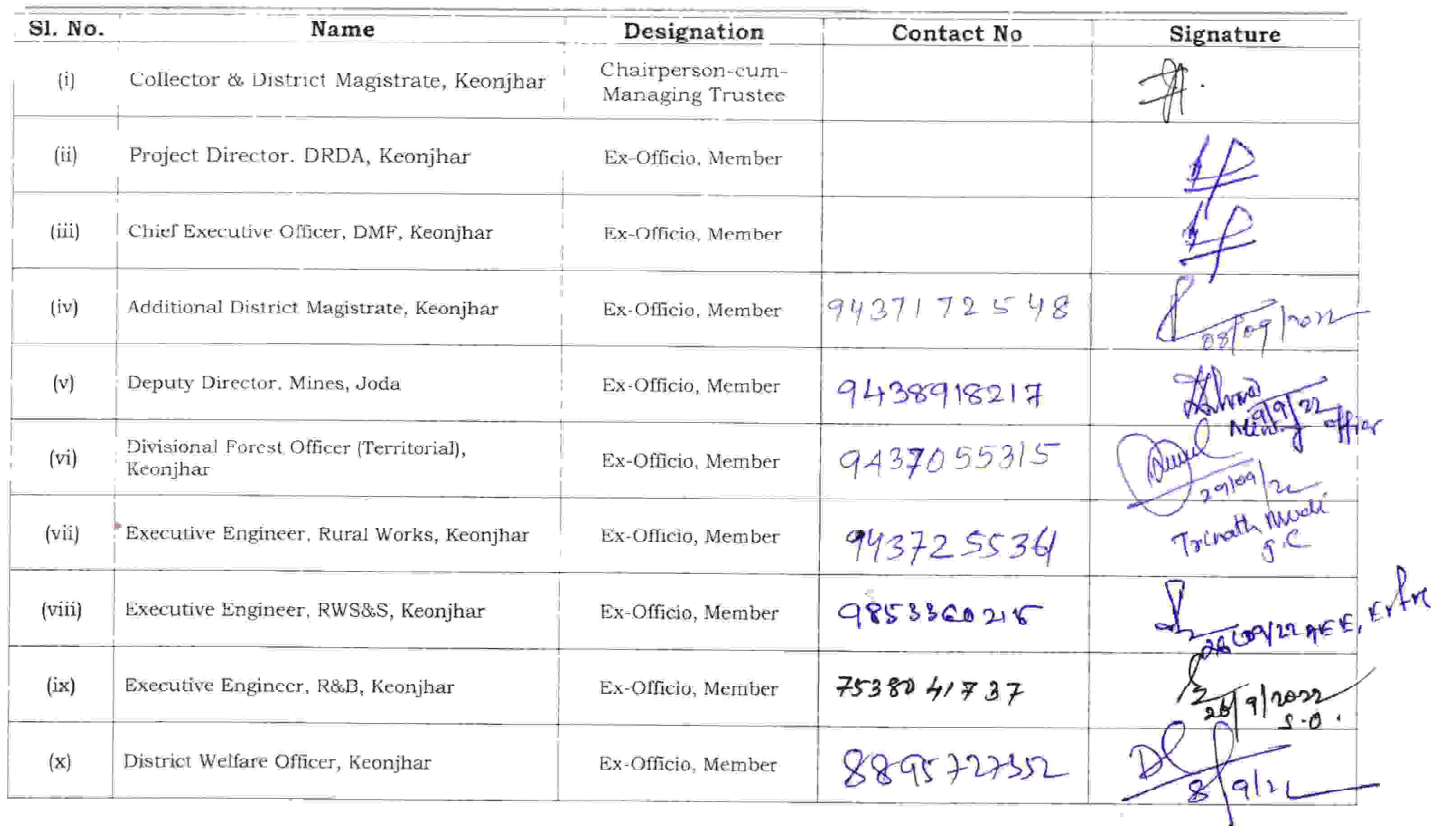 Sl. No. Name Designation Contact No Signature
(i) Collector & District Magistrate, Keonjhar Chairperson-cum-
Managing Trustee
(ii) Project Director. DRDA, Keonjhar Ex-Officio, Member
(iii) Chief Executive Officer, DMF, Keonjhar Ex-Officio, Member
(iv) Additional District Magistrate, Keonjhar Ex-Officio, Member 9437172548
08/09/2022
(v) Deputy Director. Mines, Joda Ex-Officio, Member 9438918217
9/9/22
Mining officer
(vi) Divisional Forest Officer (Territorial),
Keonjhar Ex-Officio, Member 9437055315
29/09/22
(vii) Executive Engineer, Rural Works, Keonjhar Ex-Officio, Member Trinath
(viii) Executive Engineer, RWS&S, Keonjhar Ex-Officio, Member
26/09/22 AEE,
(ix) Executive Engineer, R&B, Keonjhar Ex-Officio, Member 7538041737
26/9/2022
S.O.
(x) District Welfare Officer, Keonjhar Ex-Officio, Member 8895727352
8/9/22